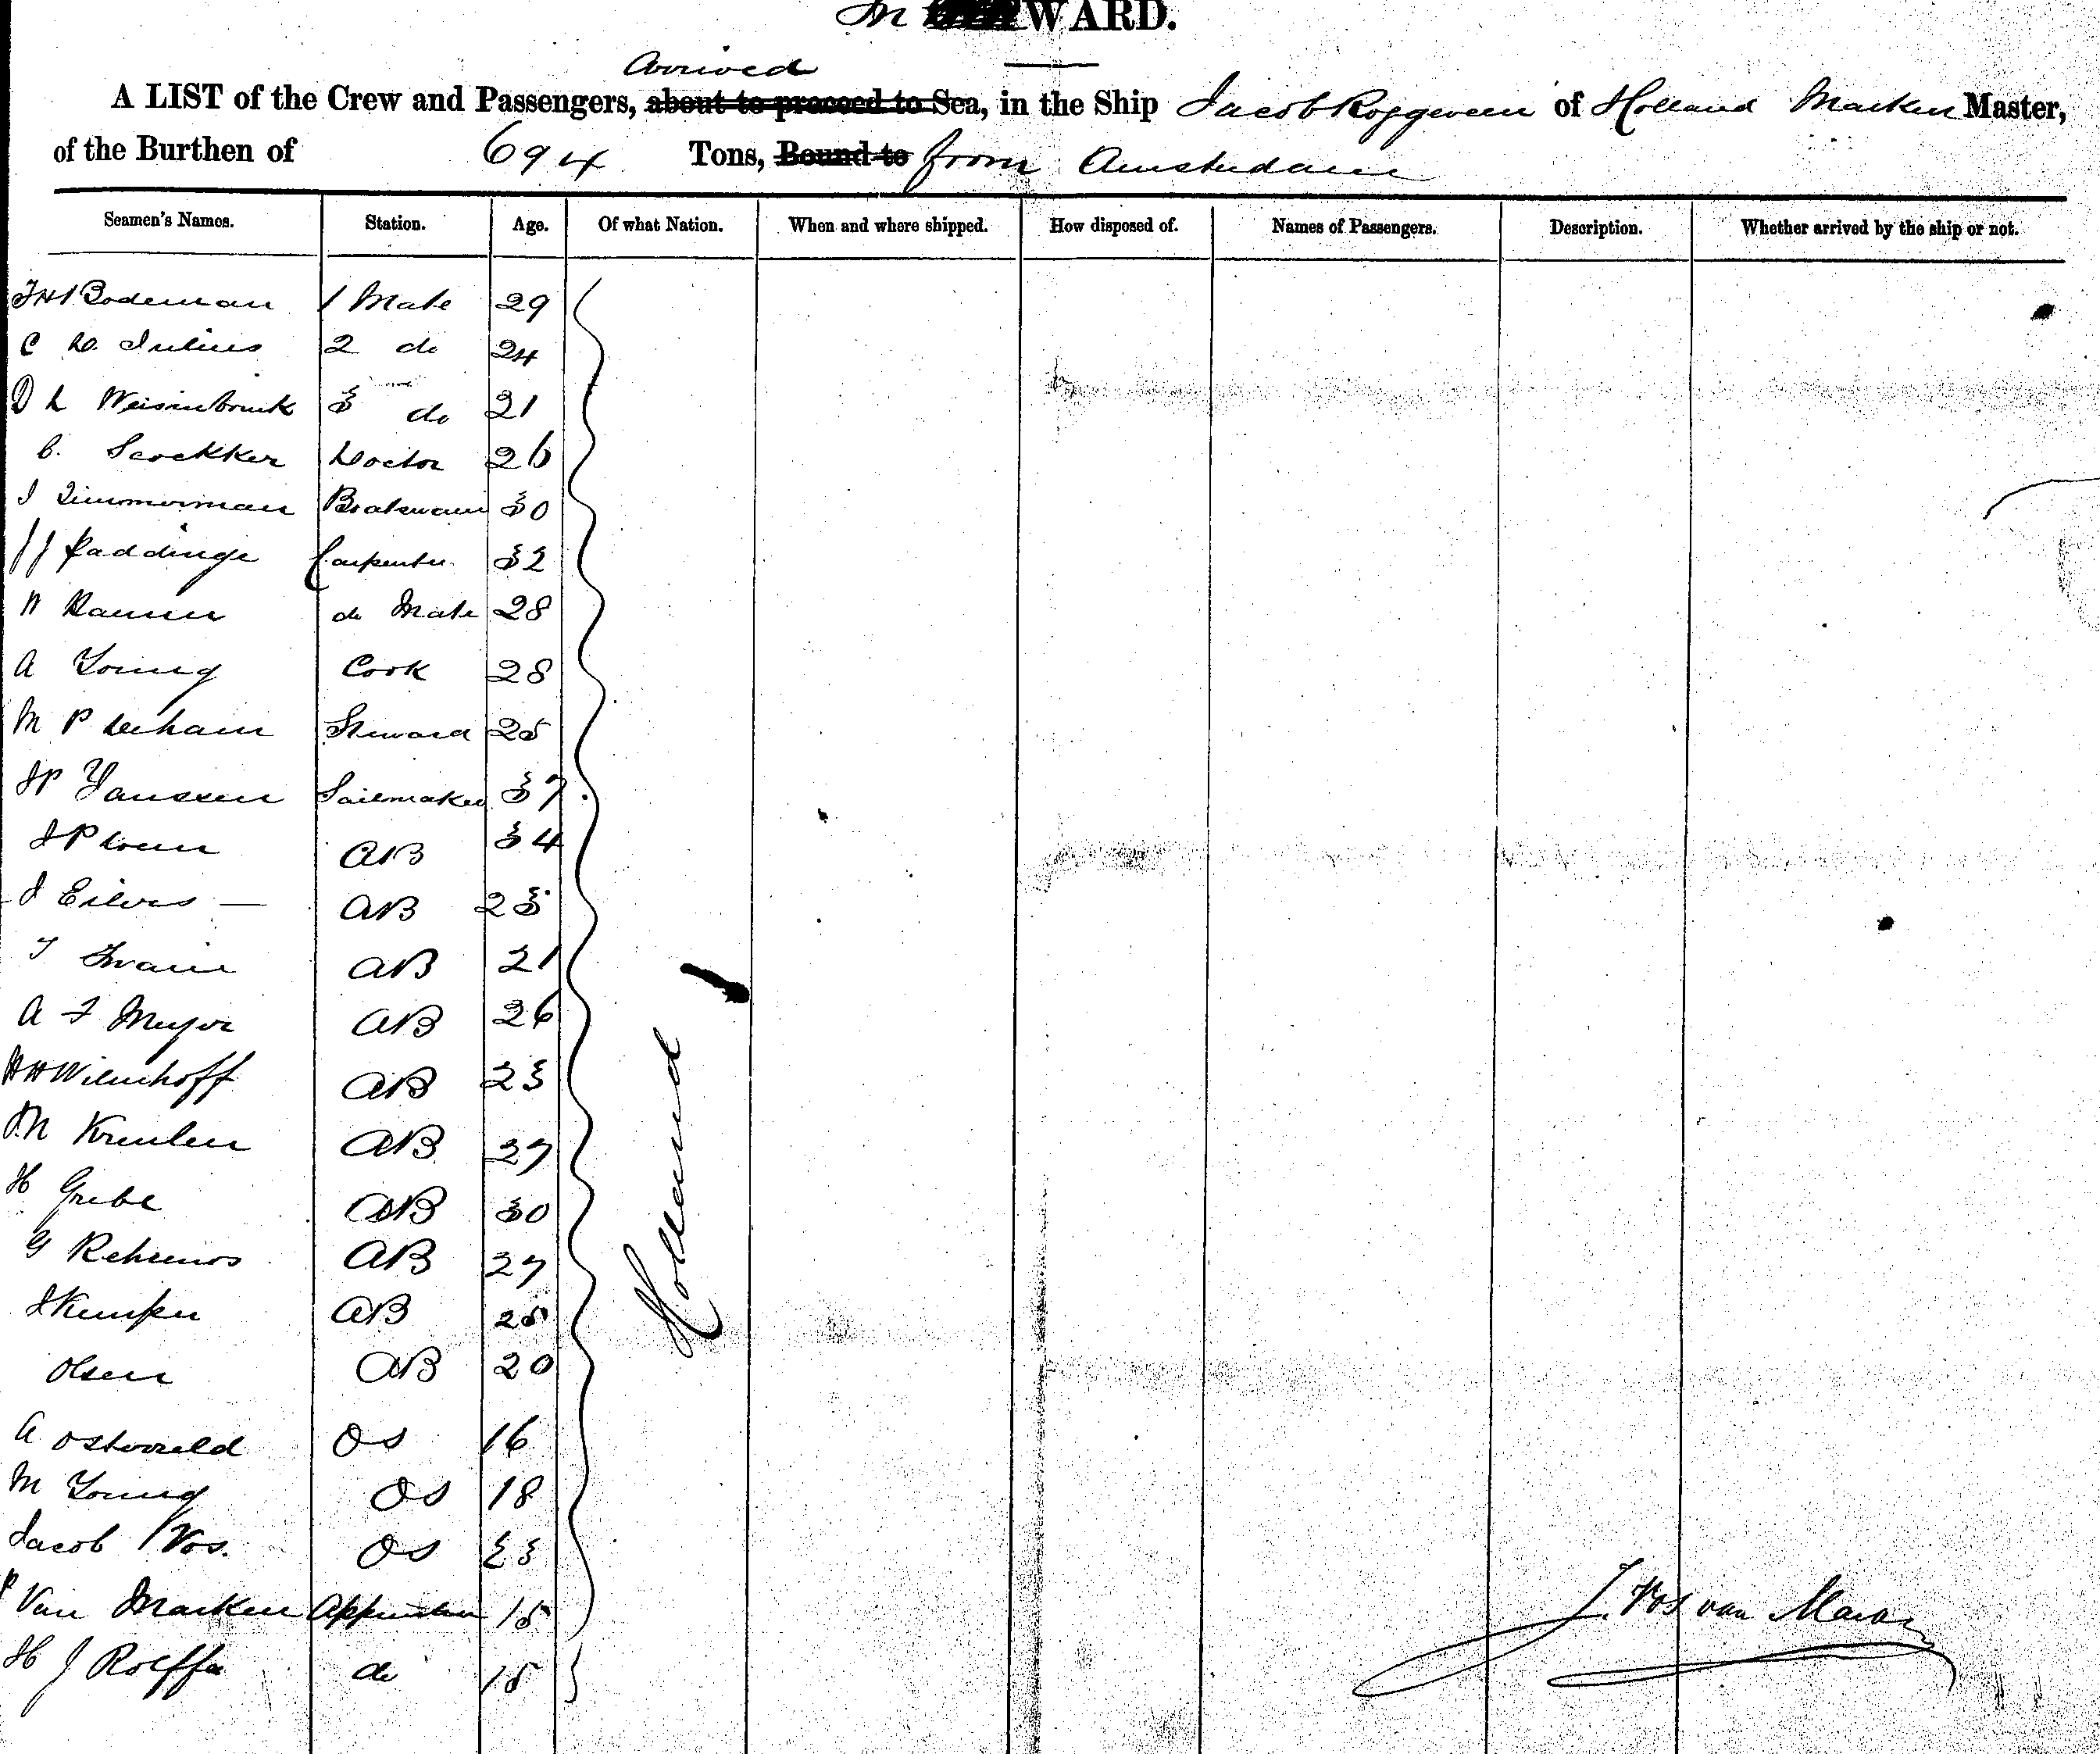 In WARD.
Arrived
A LIST of the Crew and Passengers, about to proceed to Sea, in the Ship Jacob Roggeveen of Holland Marken Master,
of the Burthen of 694 Tons, Bound to from Amsterdam
Seamen's Names. Station. Age. Of what Nation. When and where shipped. How disposed of. Names of Passengers. Description. Whether arrived by the ship or not.
Bodeman 1 Mate 29
C Julius 2 do 24
D L 3 do 21
Doctor 26
J Zimmerman Boatswain 30
Paddinge Carpenter 32
do Mate 28
A Young Cook 28
M P Denham Steward 25
J P Yanssen Sailmaker 37
J P AB 34
J Eilers — AB 23
T Swain AB 21
A F Meyer AB 26
H H Wilenhoff AB 23
AB 27
H Grebe AB 30
G AB 27
J Kempen AB 25
Olsen AB 20
A Osterveld OS 16
M Young OS 18
Jacob Vos. OS 23
Van Marken 15
H J Rolffe do 15
Holland
J. Vos van